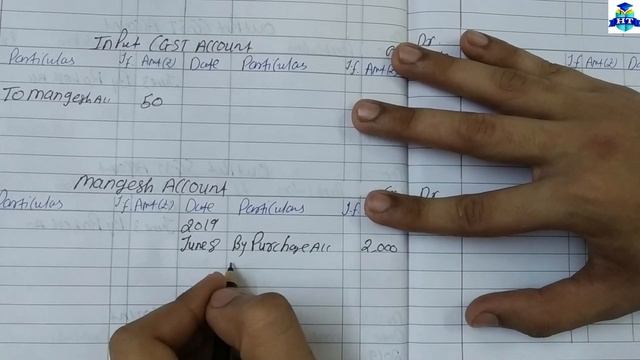 Input CGST Account Dr.
Particulas Jf Amt(₹) Date Particulas Jf Jf Amt(₹)
To Mangesh A/c 50
Mangesh Account Dr
Particulas Jf Amt(₹) Date Particulas Jf
2019
June 8 By Purchase A/c 2,000
HT